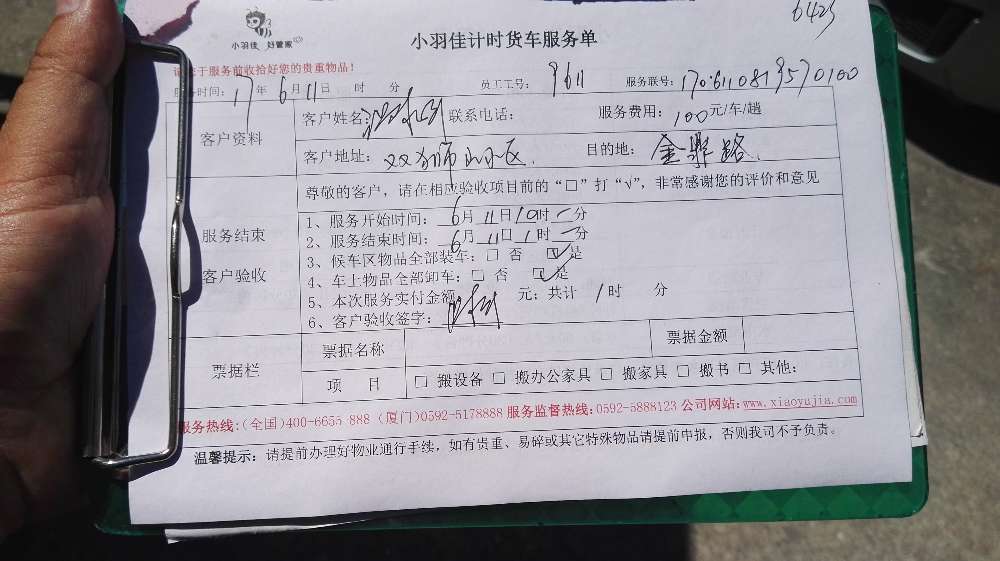 6423
小羽佳 好管家
小羽佳计时货车服务单
请您于服务前收拾好您的贵重物品！
服务时间：17年 6月 11日 时 分 员工工号： 9611 服务联号：170611081957 0100
客户资料
客户姓名： 联系电话： 服务费用：100元/车/趟
客户地址： 小区 目的地： 金鼎路
尊敬的客户，请在相应验收项目前的“□”打“√”，非常感谢您的评价和意见
服务结束
客户验收
1、服务开始时间： 6月 11日 10时 分
2、服务结束时间： 6月 11日 1时 分
3、候车区物品全部装车：□ 否 ☑ 是
4、车上物品全部卸车：□ 否 ☑ 是
5、本次服务实付金额 元；共计 1时 分
6、客户验收签字：
票据栏
票据名称 票据金额
项 目 □ 搬设备 □ 搬办公家具 □ 搬家具 □ 搬书 □ 其他：
服务热线：(全国)400-6655 888 (厦门)0592-5178888 服务监督热线：0592-5888123 公司网站：www.xiaoyujia.com
温馨提示：请提前办理好物业通行手续，如有贵重、易碎或其它特殊物品请提前申报，否则我司不予负责。